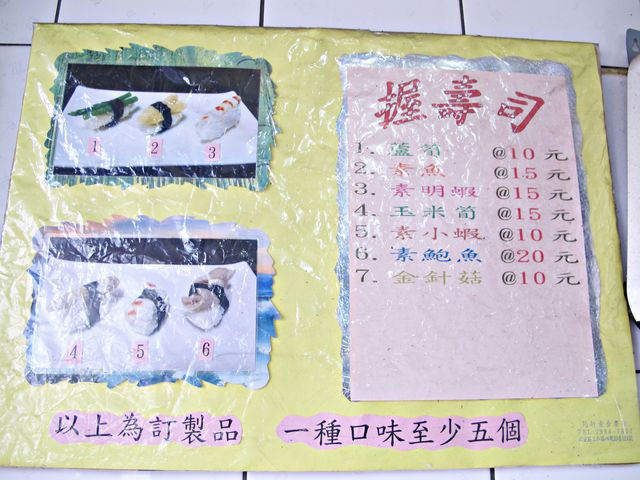 握壽司
1. 蘆筍 @10 元
2. 素魚 @15 元
3. 素明蝦 @15 元
4. 玉米筍 @15 元
5. 素小蝦 @10 元
6. 素鮑魚 @20 元
7. 金針菇 @10 元
1 2 3
4 5 6
以上為訂製品 一種口味至少五個